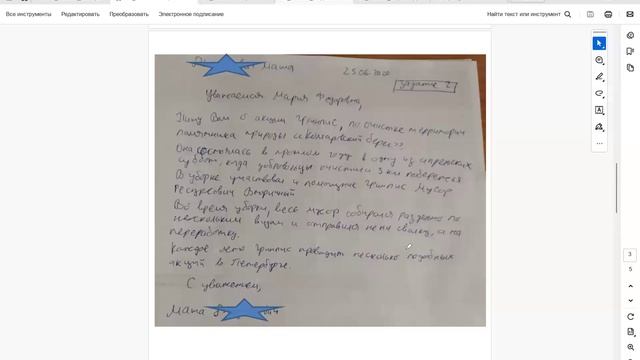 Все инструменты Редактировать Преобразовать Электронное подписание Найти текст или инструмент
Маша 25.06.2020
Задание 2
Уважаемая Мария Федоровна,
Пишу Вам о акции Гринпис, по очистке территории
памятника природы «Комаровский берег».
Она состоялась в прошлом году в одну из апрельских
суббот, когда добровольцы очистили 3 км побережья
В уборке участвовал и помощник Гринпис Мусор
Ресурсович Вторичный
Во время уборки, весь мусор собирался раздельно по
нескольким видам и отправился не на свалку, а на
переработку.
Каждое лето Гринпис проводит несколько подобных
акций в Петербурге.
С уважением,
Маша
3
5